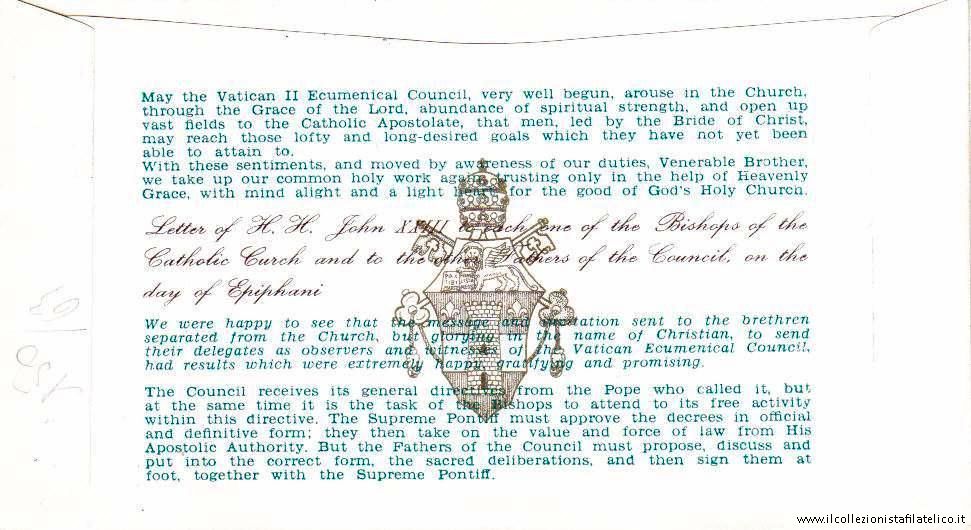 May the Vatican II Ecumenical Council, very well begun, arouse in the Church,
through the Grace of the Lord, abundance of spiritual strength, and open up
vast fields to the Catholic Apostolate, that men, led by the Bride of Christ,
may reach those lofty and long-desired goals which they have not yet been
able to attain to.
With these sentiments, and moved by awareness of our duties, Venerable Brother,
we take up our common holy work again trusting only in the help of Heavenly
Grace, with mind alight and a light heart for the good of God's Holy Church.
Letter of H. H. John XXIII to each one of the Bishops of the
Catholic Curch and to the other Fathers of the Council, on the
day of Epiphani
We were happy to see that the message and invitation sent to the brethren
separated from the Church, but glorying in the name of Christian, to send
their delegates as observers and witnesses of the Vatican Ecumenical Council,
had results which were extremely happy, gratifying and promising.
The Council receives its general directives from the Pope who called it, but
at the same time it is the task of the Bishops to attend to its free activity
within this directive. The Supreme Pontiff must approve the decrees in official
and definitive form; they then take on the value and force of law from His
Apostolic Authority. But the Fathers of the Council must propose, discuss and
put into the correct form, the sacred deliberations, and then sign them at
foot, together with the Supreme Pontiff.
www.ilcollezionistafilatelico.it